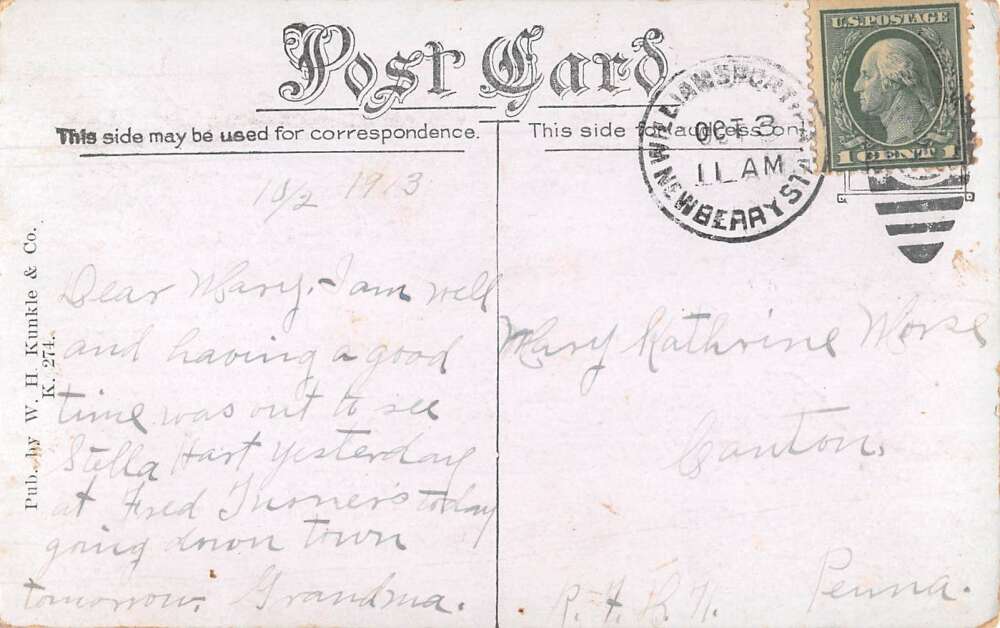 Post Card
This side may be used for correspondence.
This side for address only
WILLIAMSPORT, PA.
OCT 3
11 AM
NEWBERRY STA
U.S. POSTAGE
1 CENT 1
10/2 1913
Pub. by W. H. Kunkle & Co.
K. 274.
Dear Mary. I am well
and having a good
time was out to see
Stella Hart yesterday
at Fred Turner's today
going down town
tomorrow. Grandma.
Mary Kathrine Morse
Canton.
Penna.